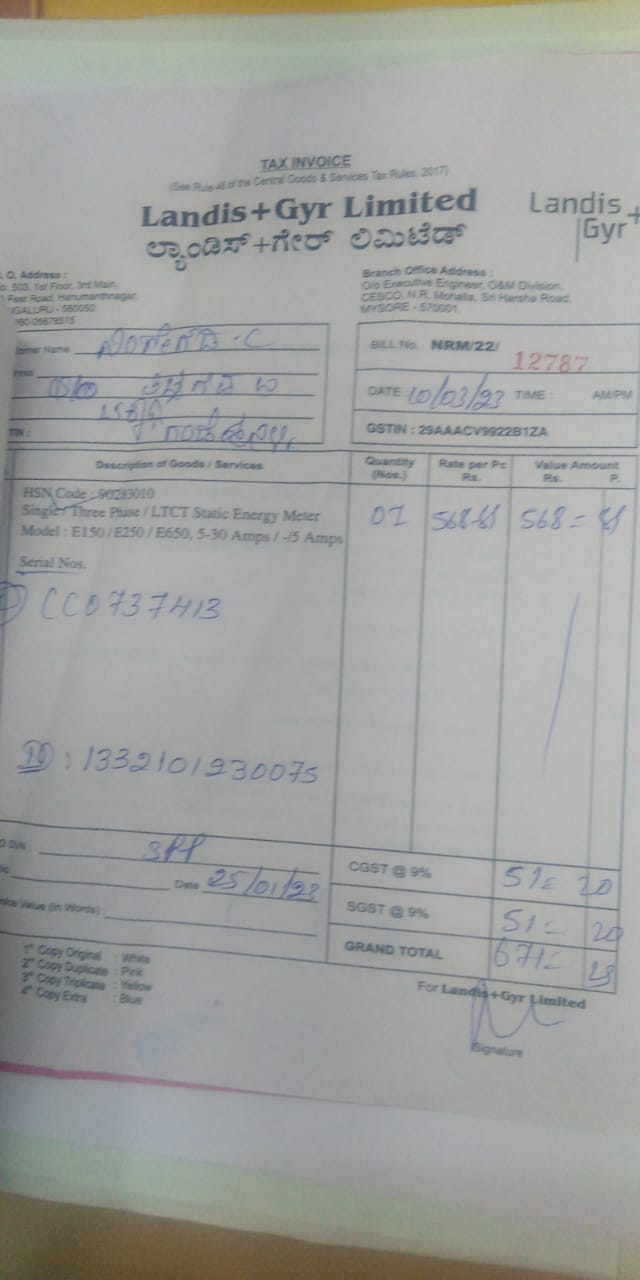 TAX INVOICE
(See Rule 46 of the Central Goods & Services Tax Rules, 2017)
Landis+Gyr Limited
ಲ್ಯಾಂಡಿಸ್+ಗೇರ್ ಲಿಮಿಟೆಡ್
Landis+
Gyr
O. Address :
503, 1st Floor, 3rd Main,
Road, Hanumanthnagar,
GALURU - 560050.
Branch Office Address :
O/o Executive Engineer, O&M Division,
CESCO, N.R. Mohalla, Sri Harsha Road,
MYSORE - 570001.
omer Name
BILL No. NRM/22/ 12787
DATE : 10/03/23 TIME : AM/PM
GSTIN : 29AAACV9922B1ZA
Description of Goods / Services
Quantity (Nos.)
Rate per Pc Rs.
Value Amount Rs. P.
HSN Code : 90283010
Single / Three Phase / LTCT Static Energy Meter
Model : E150 / E250 / E650, 5-30 Amps / -/5 Amps
01 568 568=
Serial Nos.
CC0737413
ID : 1332101230075
Date 25/01/23
CGST @ 9% 51= 20
SGST @ 9% 51= 20
GRAND TOTAL 671=
oice Value (In Words) :
1st Copy Original : White
2nd Copy Duplicate : Pink
3rd Copy Triplicate : Yellow
4th Copy Extra : Blue
For Landis+Gyr Limited
Signature